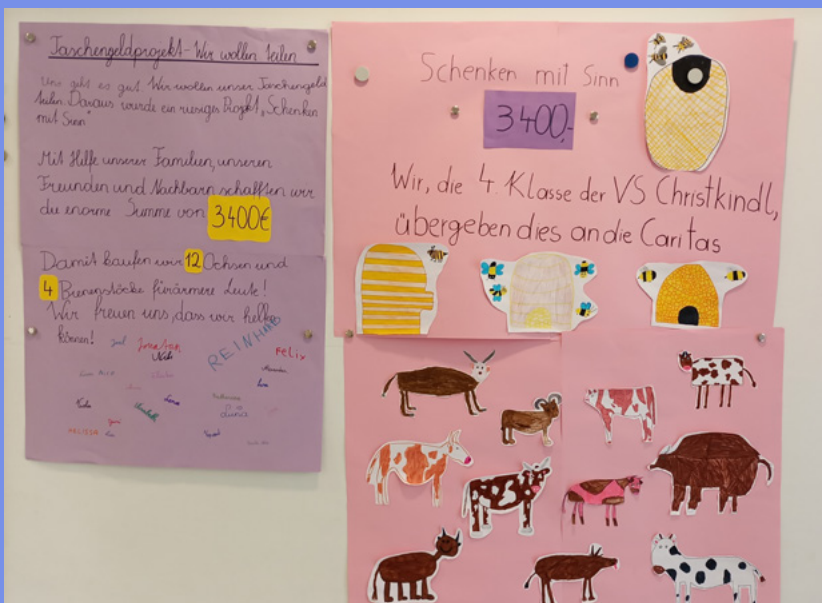 Taschengeldprojekt - Wir wollen teilen
Uns geht es gut. Wir wollen unser Taschengeld
teilen. Daraus wurde ein riesiges Projekt „Schenken
mit Sinn"
Mit Hilfe unserer Familien, unseren
Freunden und Nachbarn schafften wir
die enorme Summe von 3400€
Damit kaufen wir 12 Ochsen und
4 Bienenstöcke für ärmere Leute!
Wir freuen uns, dass wir helfen
können!
Jonathan
REINHARD
Felix
MELISSA
Schenken mit Sinn
3400,-
Wir, die 4. Klasse der VS Christkindl,
übergeben dies an die Caritas